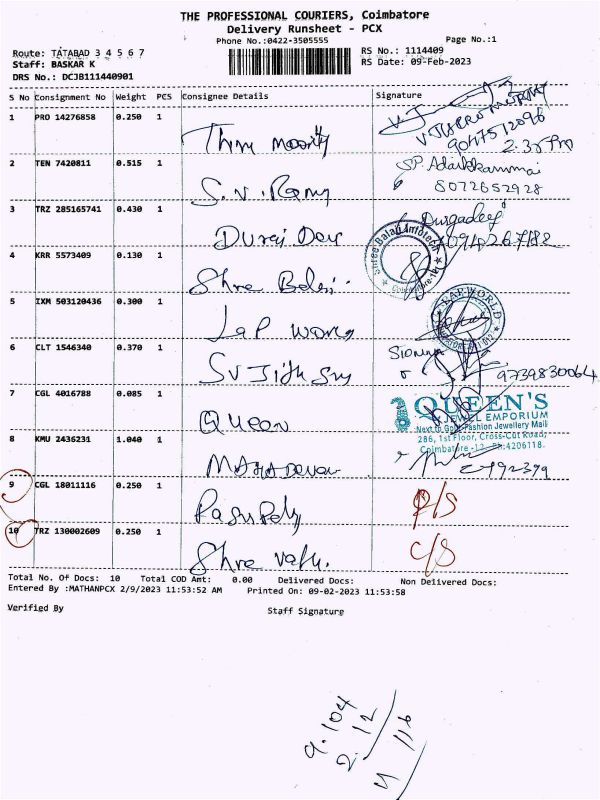 THE PROFESSIONAL COURIERS, Coimbatore
Delivery Runsheet - PCX
Phone No.:0422-3505555
Page No.:1
Route: TATABAD 3 4 5 6 7
RS No.: 1114409
Staff: BASKAR K
RS Date: 09-Feb-2023
DRS No.: DCJB111440901
S No Consignment No Weight PCS Consignee Details Signature
1 PRO 14276858 0.250 1
9047512096
2.35 Pm
2 TEN 7420811 0.515 1 S.V.
8072652928
3 TRZ 285165741 0.430 1 Durai
Shree Balaji Infotech
4 KRR 5573409 0.130 1 Shre
5 IXM 503120436 0.300 1 Lap
LAP WORLD
6 CLT 1546340 0.370 1
9739830064
7 CGL 4016788 0.085 1 Queen
QUEEN'S
JEWEL EMPORIUM
Fashion Jewellery Mall
286, 1st Floor, Cross-Cut Road,
Coimbatore -12. Ph:4206118.
8 KMU 2436231 1.040 1 MAHADevan
9 CGL 18011116 0.250 1 P/S
10 TRZ 130002609 0.250 1 Shre C/S
Total No. Of Docs: 10 Total COD Amt: 0.00 Delivered Docs: Non Delivered Docs:
Entered By :MATHANPCX 2/9/2023 11:53:52 AM Printed On: 09-02-2023 11:53:58
Verified By Staff Signature
9.104
2.12
116